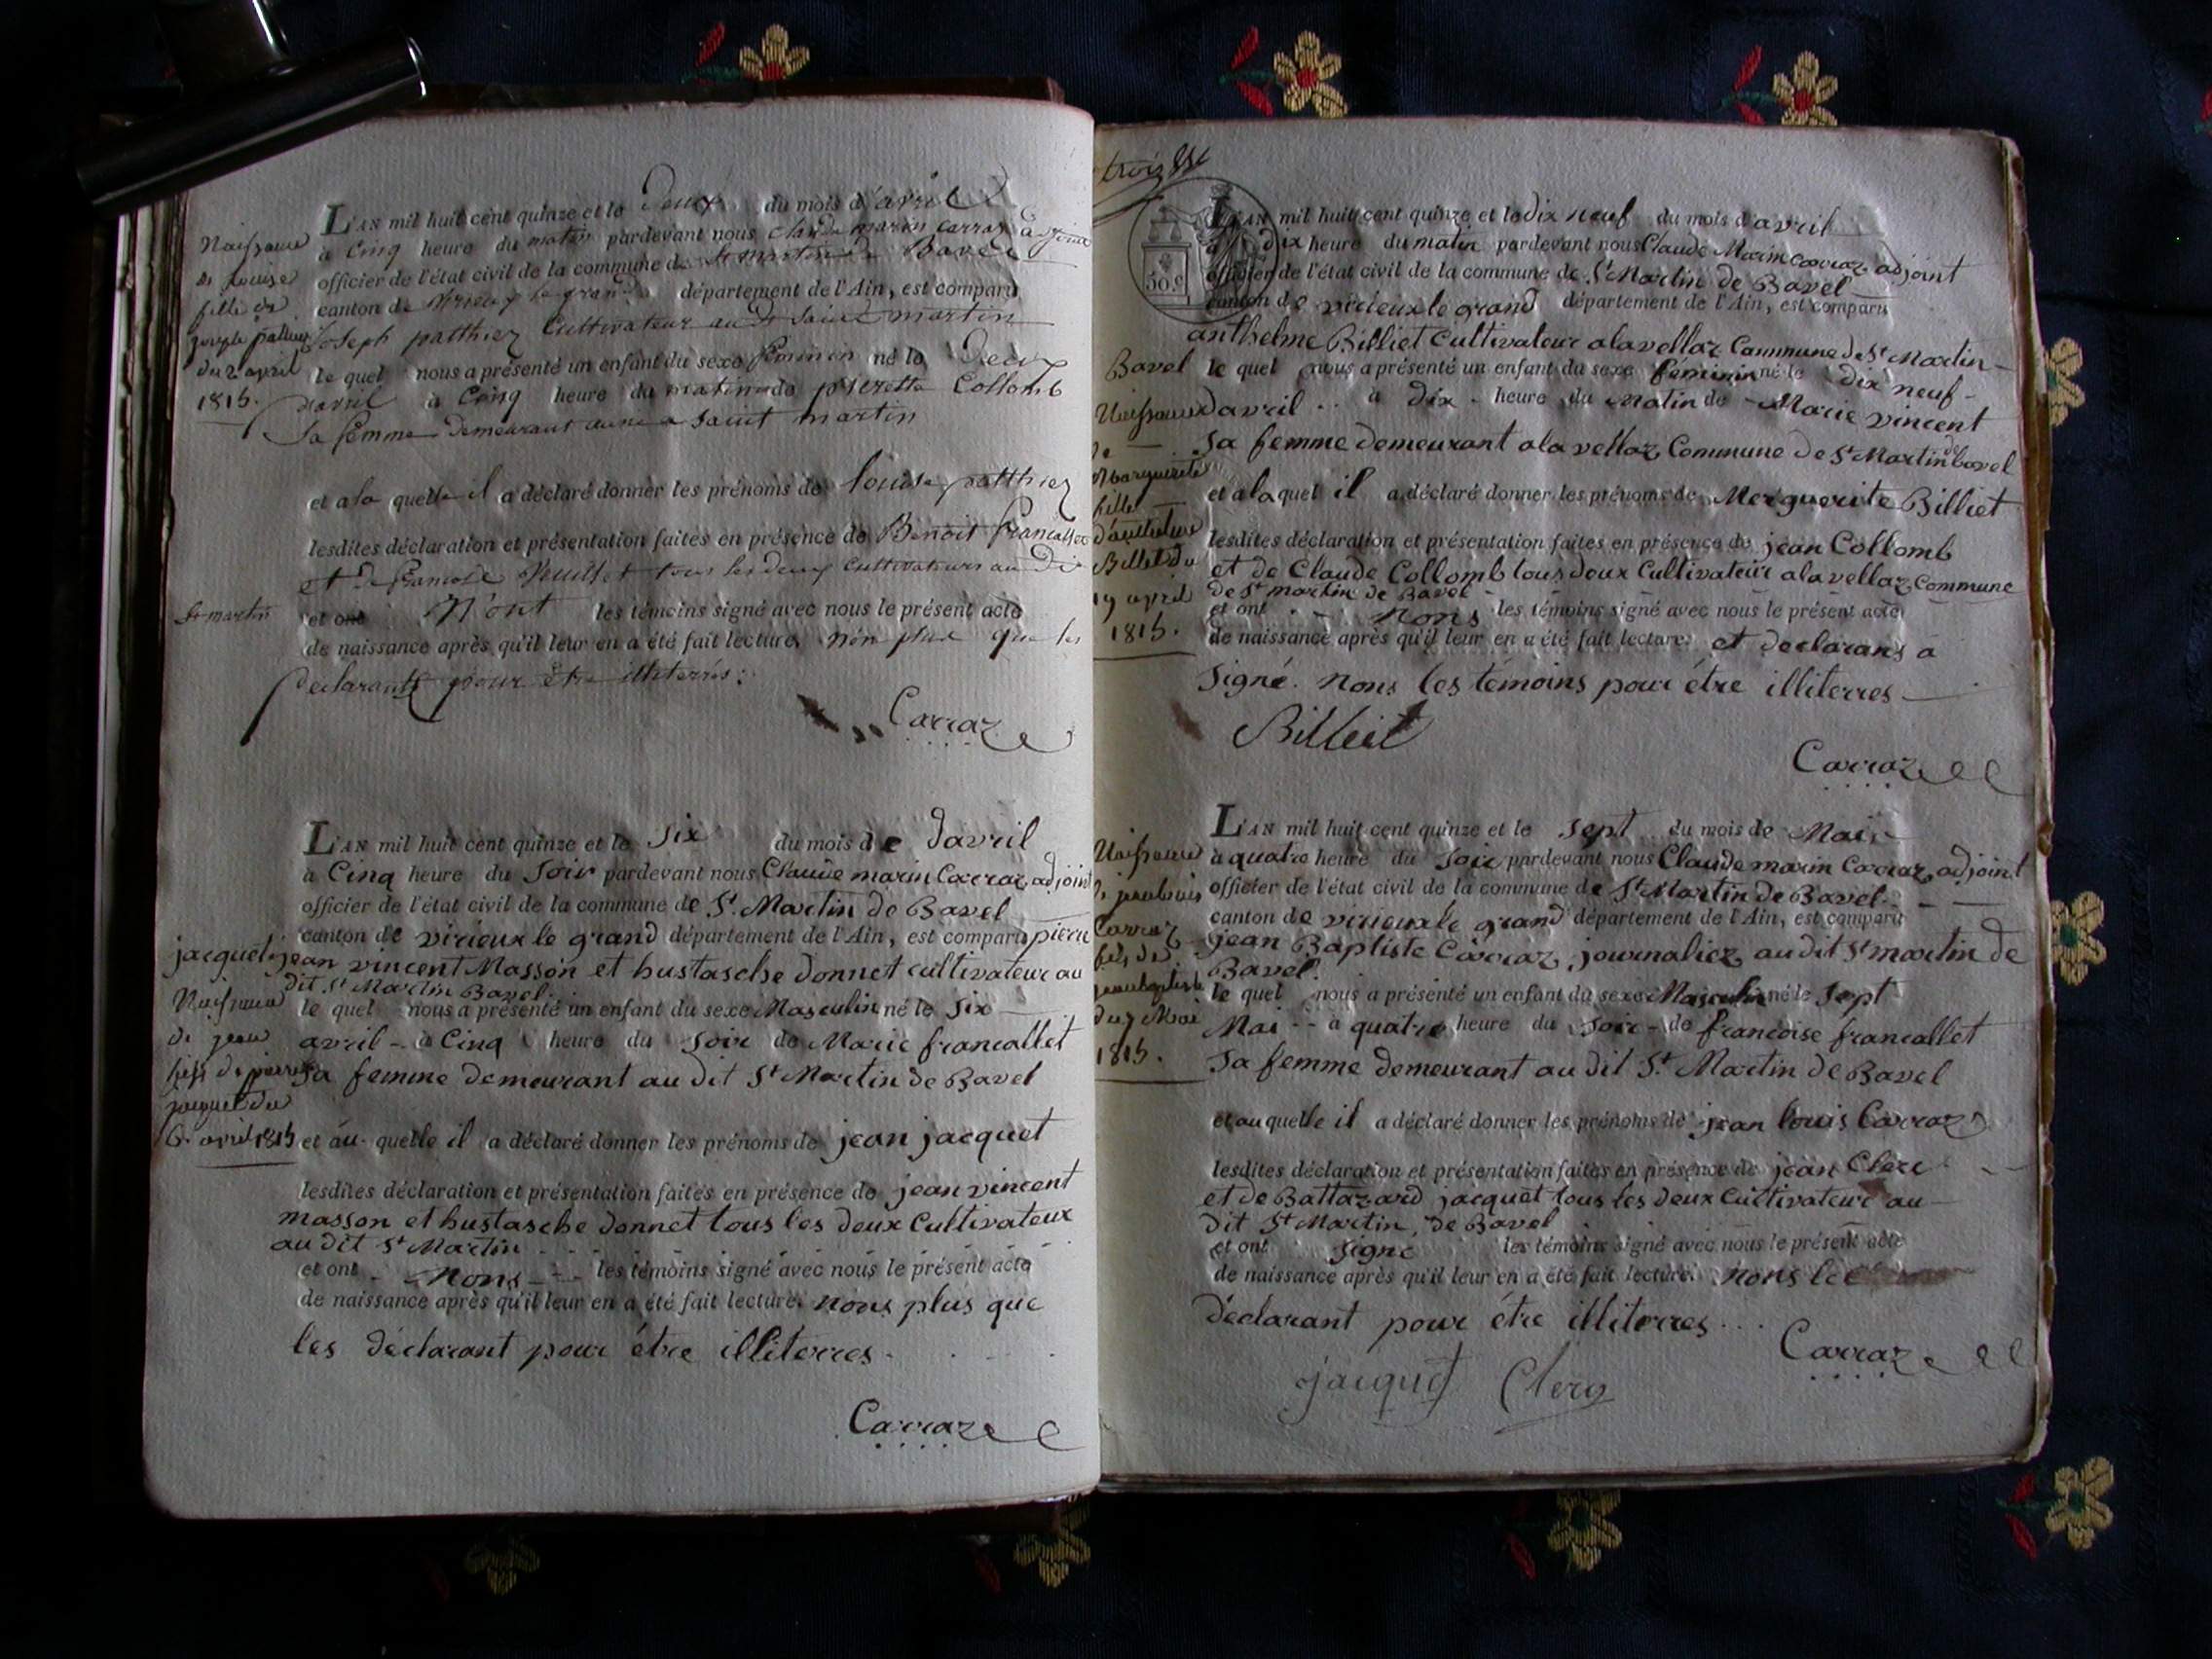 L'AN mil huit cent quinze et le Deux du mois d'avril
à Cinq heure du matin pardevant nous Claude marin Carraz adjoint
officier de l'état civil de la commune de St martin de Bavel
canton de virieux le grand département de l'Ain, est comparu
joseph patthiez Cultivateur au dt saint martin
le quel nous a présenté un enfant du sexe feminin né le Deux
davril à Cinq heure du matin de pierrette Collomb
Sa femme Demeurant saint martin
et a la quelle il a déclaré donner les prénoms de louise patthiez
lesdites déclaration et présentation faites en présence de Benoit francallet
et de francois tous les deux cultivateurs au dit
St martin
et ont N'ont les témoins signé avec nous le présent acte
de naissance après qu'il leur en a été fait lecture. non plus que les
Declarants pour être illiterrés:
Carraz
Naissance
de Louise
fille de
joseph pattiez
du 2 avril
1815.
L'AN mil huit cent quinze et le Six du mois de davril
à Cinq heure du Soir pardevant nous Claude marin Carraz adjoint
officier de l'état civil de la commune de St. Martin de Bavel
canton de virieux le grand département de l'Ain, est comparu pierre
jacquet jean vincent Masson et hustasche donnet cultivateur au
dit St Martin Bavel.
le quel nous a présenté un enfant du sexe Masculin né le Six
avril - à Cinq heure du Soir de Marie francallet
Sa femme demeurant au dit St Martin de Bavel
et au quelle il a déclaré donner les prénoms de jean jacquet
lesdites déclaration et présentation faites en présence de jean vincent
masson et hustasche donnet tous les deux Cultivateux
au dit St Martin
et ont Nons les témoins signé avec nous le présent acte
de naissance après qu'il leur en a été fait lecture. nons plus que
les déclarant pour étre illiterres.
Carraz
Naissance
de jean
fils de pierre
jacquet du
6. avril 1815
trois
50.c
L'AN mil huit cent quinze et le dix neuf du mois d'avril
à dix heure du matin pardevant nous Claude Marin Carraz adjoint
officier de l'état civil de la commune de St Martin de Bavel
canton de virieux le grand département de l'Ain, est comparu
anthelme Billiet Cultivateur alavellaz Commune de St Martin
Bavel le quel nous a présenté un enfant du sexe feminin né le dix neuf
davril .. à dix - heure du Matin de - Marie vincent
Sa femme demeurant alavellaz Commune de St Martin de bavel
et alaquel il a déclaré donner les prénoms de Merguerite Billiet
lesdites déclaration et présentation faites en présence de jean Collomb
et de Claude Collomb tous deux Cultivateur alavellaz Commune
de St martin de Bavel
et ont Nons les témoins signé avec nous le présent acte
de naissance après qu'il leur en a été fait lecture. et declarans a
Signé. nons les témoins pour étre illiterres
Billeit
Carraz
Naissance
de
Marguerite
fille
d'anthelme
Billet du
19 avril
1815.
L'AN mil huit cent quinze et le Sept du mois de Mai
à quatre heure du Soir pardevant nous Claude marin Carraz adjoint
officier de l'état civil de la commune de St Martin de Bavel
canton de virieux le grand département de l'Ain, est comparu
jean Baptiste Carraz, journaliez au dit St martin de
Bavel.
le quel nous a présenté un enfant du sexe Masculin né le Sept
Mai -- à quatre heure du Soir - de francoise francallet
Sa femme demeurant au dit St. Martin de Bavel
et au quelle il a déclaré donner les prénoms de jean louis Carraz
lesdites déclaration et présentation faites en présence de jean Clerc
et de Battazard jacquet tous les deux Cultivateur au
dit St Martin, de Bavel
et ont Signé les témoins signé avec nous le présent acte
de naissance après qu'il leur en a été fait lecture. nons le
déclarant pour étre illiterres...
Carraz
jacquet Clerq
Naissance
de jean louis
Carraz
fils de
jean baptiste
du 7 Mai
1815.